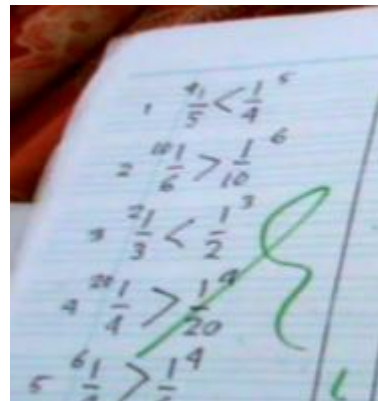 1 4 1/5 < 1/4 5
2 10 1/6 > 1/10 6
3 2 1/3 < 1/2 3
4 20 1/4 > 1/20 4
5 6 1/ > 1/ 4